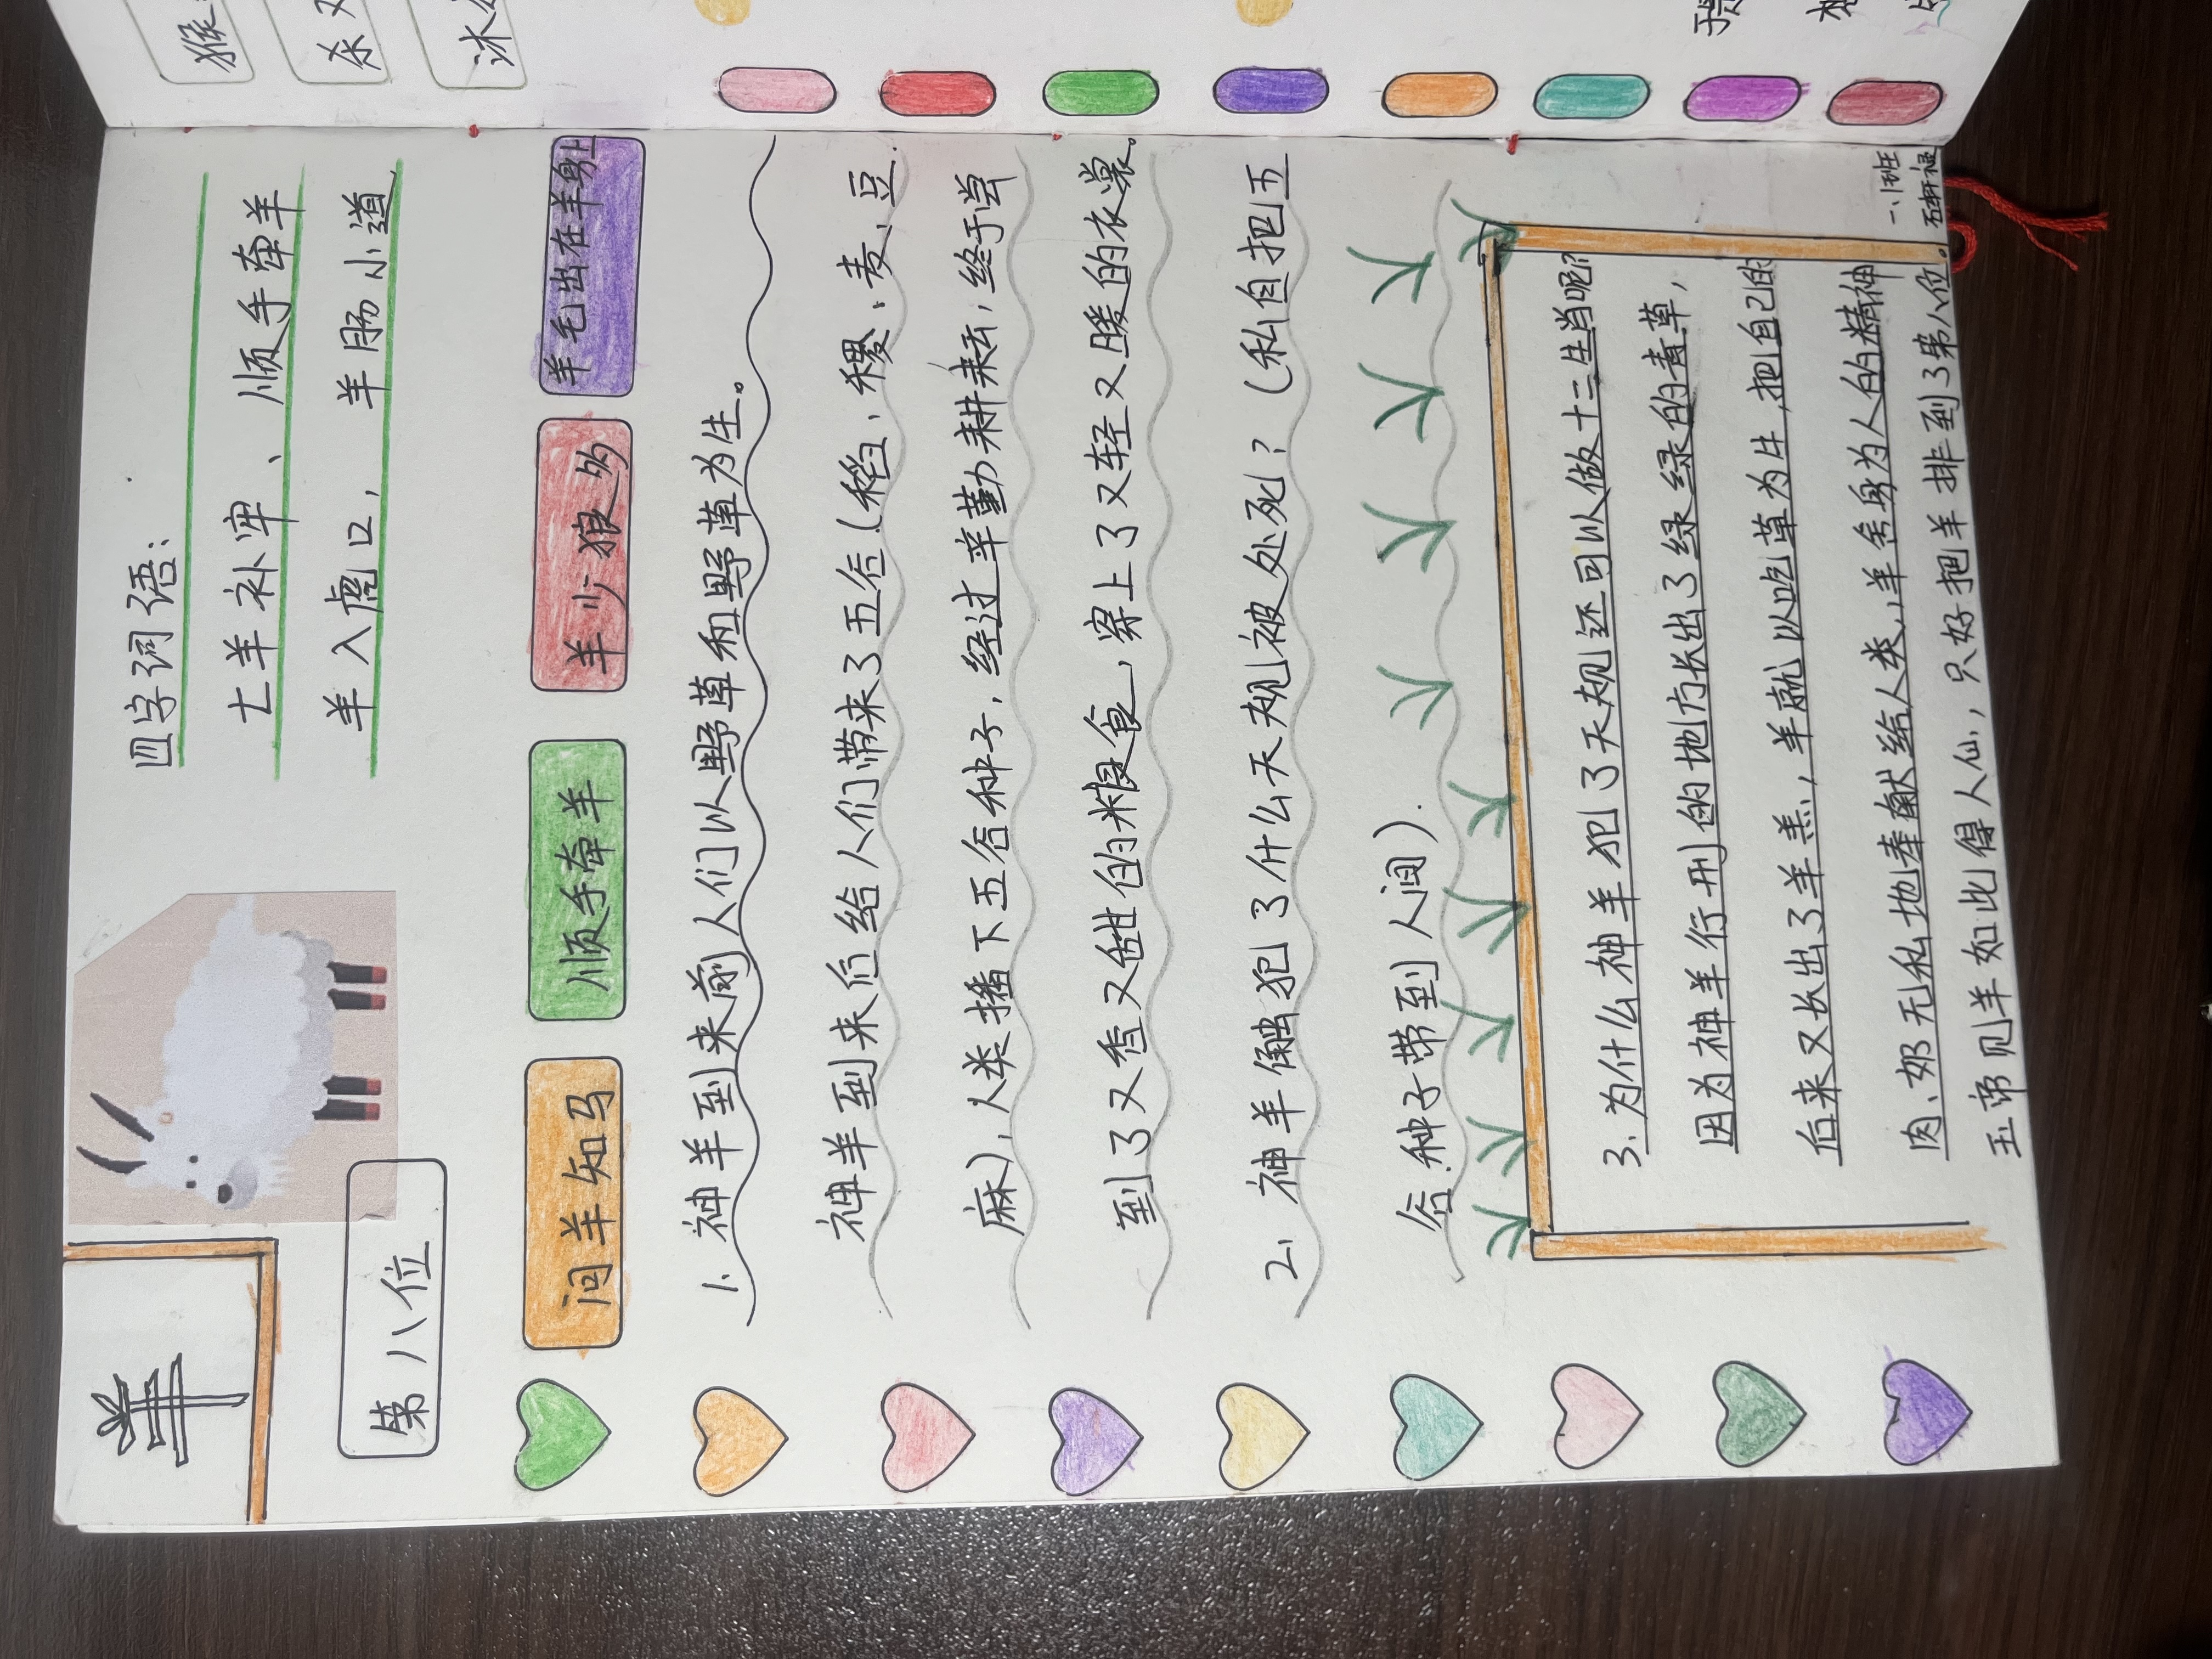 羊
第八位
四字词语：
亡羊补牢、顺手牵羊
羊入虎口，羊肠小道
问羊知马
顺手牵羊
羊少狼多
羊毛出在羊身上
1、神羊到来前人们以野草和野草为生。
神羊到来后给人们带来了五谷（稻、稷、麦、豆、
麻），人类播下五谷种子，经过辛勤耕耘，终于尝
到了又香又甜的粮食，穿上了又轻又暖的衣裳。
2、神羊触犯了什么天规被处死？（私自把五
谷种子带到人间）．
3、为什么神羊犯了天规还可以做十二生肖呢？
因为神羊行刑的地方长出了绿绿的青草，
后来又长出了羊羔，羊就以吃草为生，把自己的
肉、奶无私地奉献给人类，羊舍身为人的精神
玉帝见羊如此得人心，只好把羊排到了第八位。
一、1班
猴
杀
沐